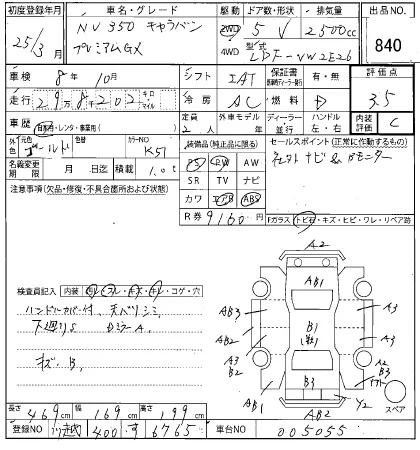 初度登録年月 車名・グレード 駆動 ドア数・形状 排気量 出品NO.
25/3月 NV350 キャラバン プレミアムGX 2WD 5 V 2500cc 840
4WD 型式 LDF-VW2E26
車検 8年 10月 シフト IAT 保証書 有・無 評価点
走行 29万8千202 キロ マイル 冷房 AC 燃料 D 3.5
車歴 自家用・レンタ・事業用( ) 定員 人 外車モデル 年 ディーラー 並行 ハンドル 左・右 内装評価 C
外色 元色 ゴールド 色替 カラーNO K51 装備品(純正品に限る) セールスポイント(正常に作動するもの)
名義変更期限 月 日迄 積載 1.0t PS PW AW ナビ & Bモニター
SR TV ナビ
注意事項(欠品・修復・不具合箇所および状態) カワ エアB ABS
R券 9160円
Fガラス トビ石・キズ・ヒビ・ワレ・リペア跡
検査員記入 内装 ヨレ・スレ・キズ・キレ・コゲ・穴
ハンドルカバー付、天バリシミ
下廻りS DミラーA、
キズ、B、
A2
AB1
AB3 A3
AB2 B1 A3
A3 A2
B2 B3
B3
AB1 AB2 Y2
スペア
長さ 469cm 幅 169cm 高さ 199cm
登録NO 川越 400 す 6765 車台NO 005055